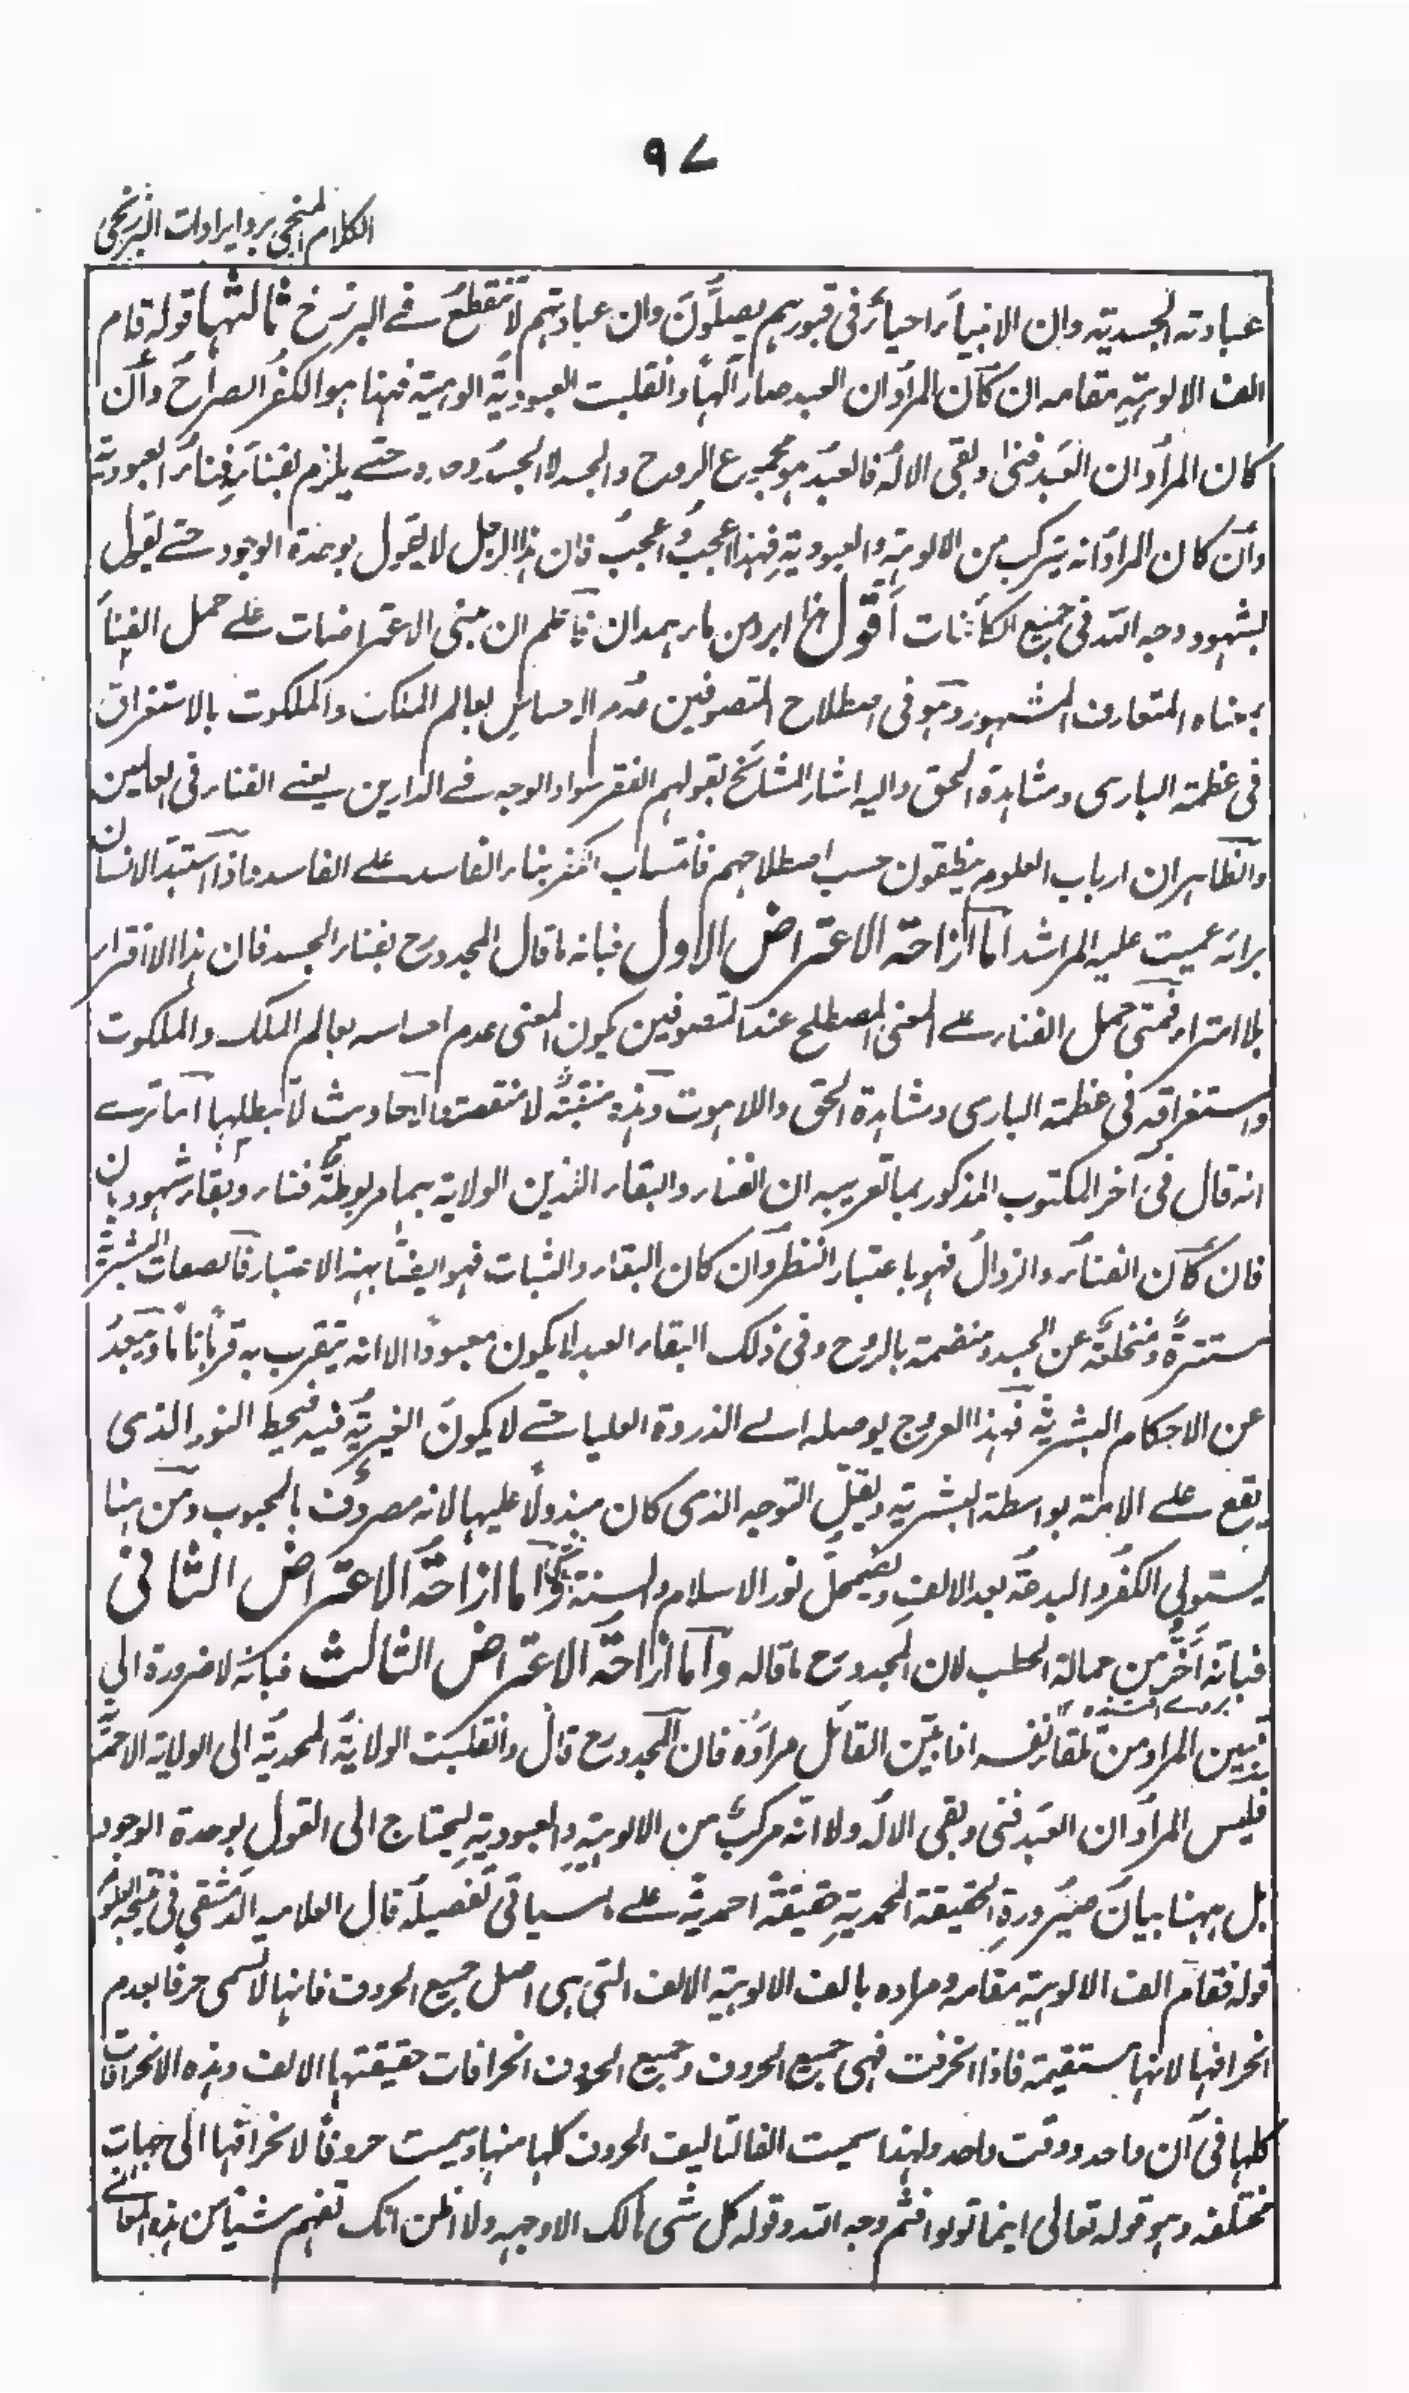 ٩٧
الكلام المنجي برد ايرادات البرزنجي
عبادته الجسدية وان الانبياء احياء في قبورهم يصلون وان عبادتهم لا تنقطع في البرزخ ثالثها قوله قام
الف الالوهية مقامه ان كان المراد ان العبد صار الها وانقلبت العبودية الوهية فهذا هو الكفر الصراح وان
كان المراد ان العبد فنى وبقى الاله فالعبد هو مجموع الروح والجسد لا الجسد وحده حتى يلزم بفنائه فناء العبودية
وان كان المراد انه يتركب من الالوهية والعبودية فهذا اعجب واعجب فان هذا الرجل لا يقول بوحدة الوجود حتى يقول
بشهود وجه الله في جميع الكائنات اقول هذا ابرد من ماء همدان فاعلم ان مبنى الاعتراضات على حمل الفناء
بمعناه المتعارف المشهور وهو في اصطلاح المتصوفين عدم الاحساس بعالم الملك والملكوت بالاستغراق
في عظمة البارى ومشاهدة الحق واليه اشار المشائخ بقولهم الفقر سواد الوجه في الدارين يعنى الفناء في العالمين
والظاهر ان ارباب العلوم ينطقون حسب اصطلاحهم فانتساب الكفر بناء الفاسد على الفاسد واذا استبد الانسان
برائه عميت عليه المراشد اما ازاحة الاعتراض الاول فبانه ما قال المجدد رح بفناء الجسد فان هذا الا افتراء
بلا امتراء فمتى حمل الفناء على المعنى المصطلح عند المتصوفين يكون المعنى عدم احساسه بعالم الملك والملكوت
واستغراقه في عظمة البارى ومشاهدة الحق واللاهوت وهذه منقبة لا منقصة والاحاديث لا تبطلها اما ترى
انه قال في آخر المكتوب المذكور بما تعريبه ان الفناء والبقاء الذين الولاية بهما مربوطة فناء وبقاء شهوديان
فان كان الفناء والزوال فهو باعتبار النظر وان كان البقاء والثبات فهو ايضا بهذا الاعتبار فالصفات البشرية
مستترة ومنخلعة عن الجسد ومنضمة بالروح وفي ذلك البقاء العبد لا يكون معبودا الا انه يتقرب به قربانا ما ويبعد
عن الاحكام البشرية فهذا العروج يوصله الى الذروة العليا حتى لا يكون الغيرية فيه فيحيط النور الذى
يقع على الامة بواسطة البشرية ويقل التوجه الذى كان مبذولا عليها لانه مصروف بالمحبوب ومن هنا
يستولى الكفر والبدعة بعد الالف ويضمحل نور الاسلام والسنة واما ازاحة الاعتراض الثاني
فبانه اخر من حمالة الحطب لان المجدد رح ما قاله واما ازاحة الاعتراض الثالث فبانه لا ضرورة الى
تبيين المراد من تلقاء نفسه اذا بين القائل مراده فان المجدد رح قال وانقلبت الولاية المحمدية الى الولاية الاحمدية
فليس المراد ان العبد فنى وبقى الاله ولا انه مركب من الالوهية والعبودية ليحتاج الى القول بوحدة الوجود
بل ههنا بيان صيرورة الحقيقة المحمدية حقيقة احمدية على ما سياتي تفصيله قال العلامه الدمشقي في نتيجة العلوم
قوله فقام الف الالوهية مقامه ومراده بالف الالوهية الالف التي هى اصل جميع الحروف فانها لا تسمى حرفا بعدم
انحرافها لانها مستقيمة فاذا انحرفت فهى جميع الحروف وجميع الحروف انحرافات حقيقتها الالف وهذه الانحرافات
كلها في آن واحد ووقت واحد ولهذا سميت الفا لتاليف الحروف كلها منها وسميت حروفا لانحرافها الى جهات
مختلفة وهو قوله تعالى اينما تولوا فثم وجه الله وقوله كل شى هالك الا وجهه ولا اظن انك تفهم شيئا من هذه المعانى